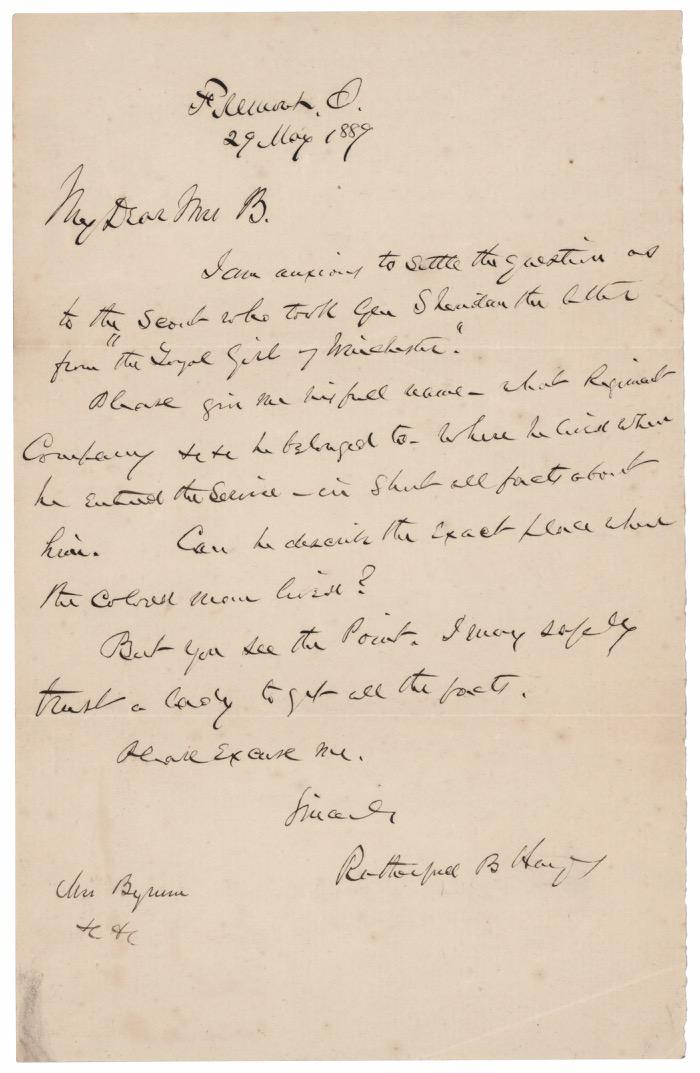 Fremont, O.
29 May 1889
My Dear Mrs B.
I am anxious to settle the question as
to the scout who took Gen Sheridan the letter
from "the Loyal Girl of Winchester."
Please give me his full name - what Regiment
Company &c &c he belonged to - where he lived when
he entered the service - in short all facts about
him. Can he describe the exact place where
the colored man lived?
But you see the Point. I may safely
trust a lady to get all the facts.
Please Excuse me.
Sincerely
Rutherford B Hayes
Mrs Bynum
&c &c